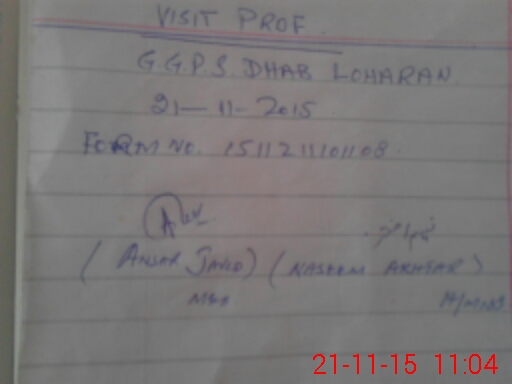 VISIT PROF.
G.G.P.S. DHAB LOHARAN.
21-11-2015
FORM NO. 1511211101108.
(ANSAR JAVED) (NASEEM AKHTAR)
H/MISS
21-11-15 11:04